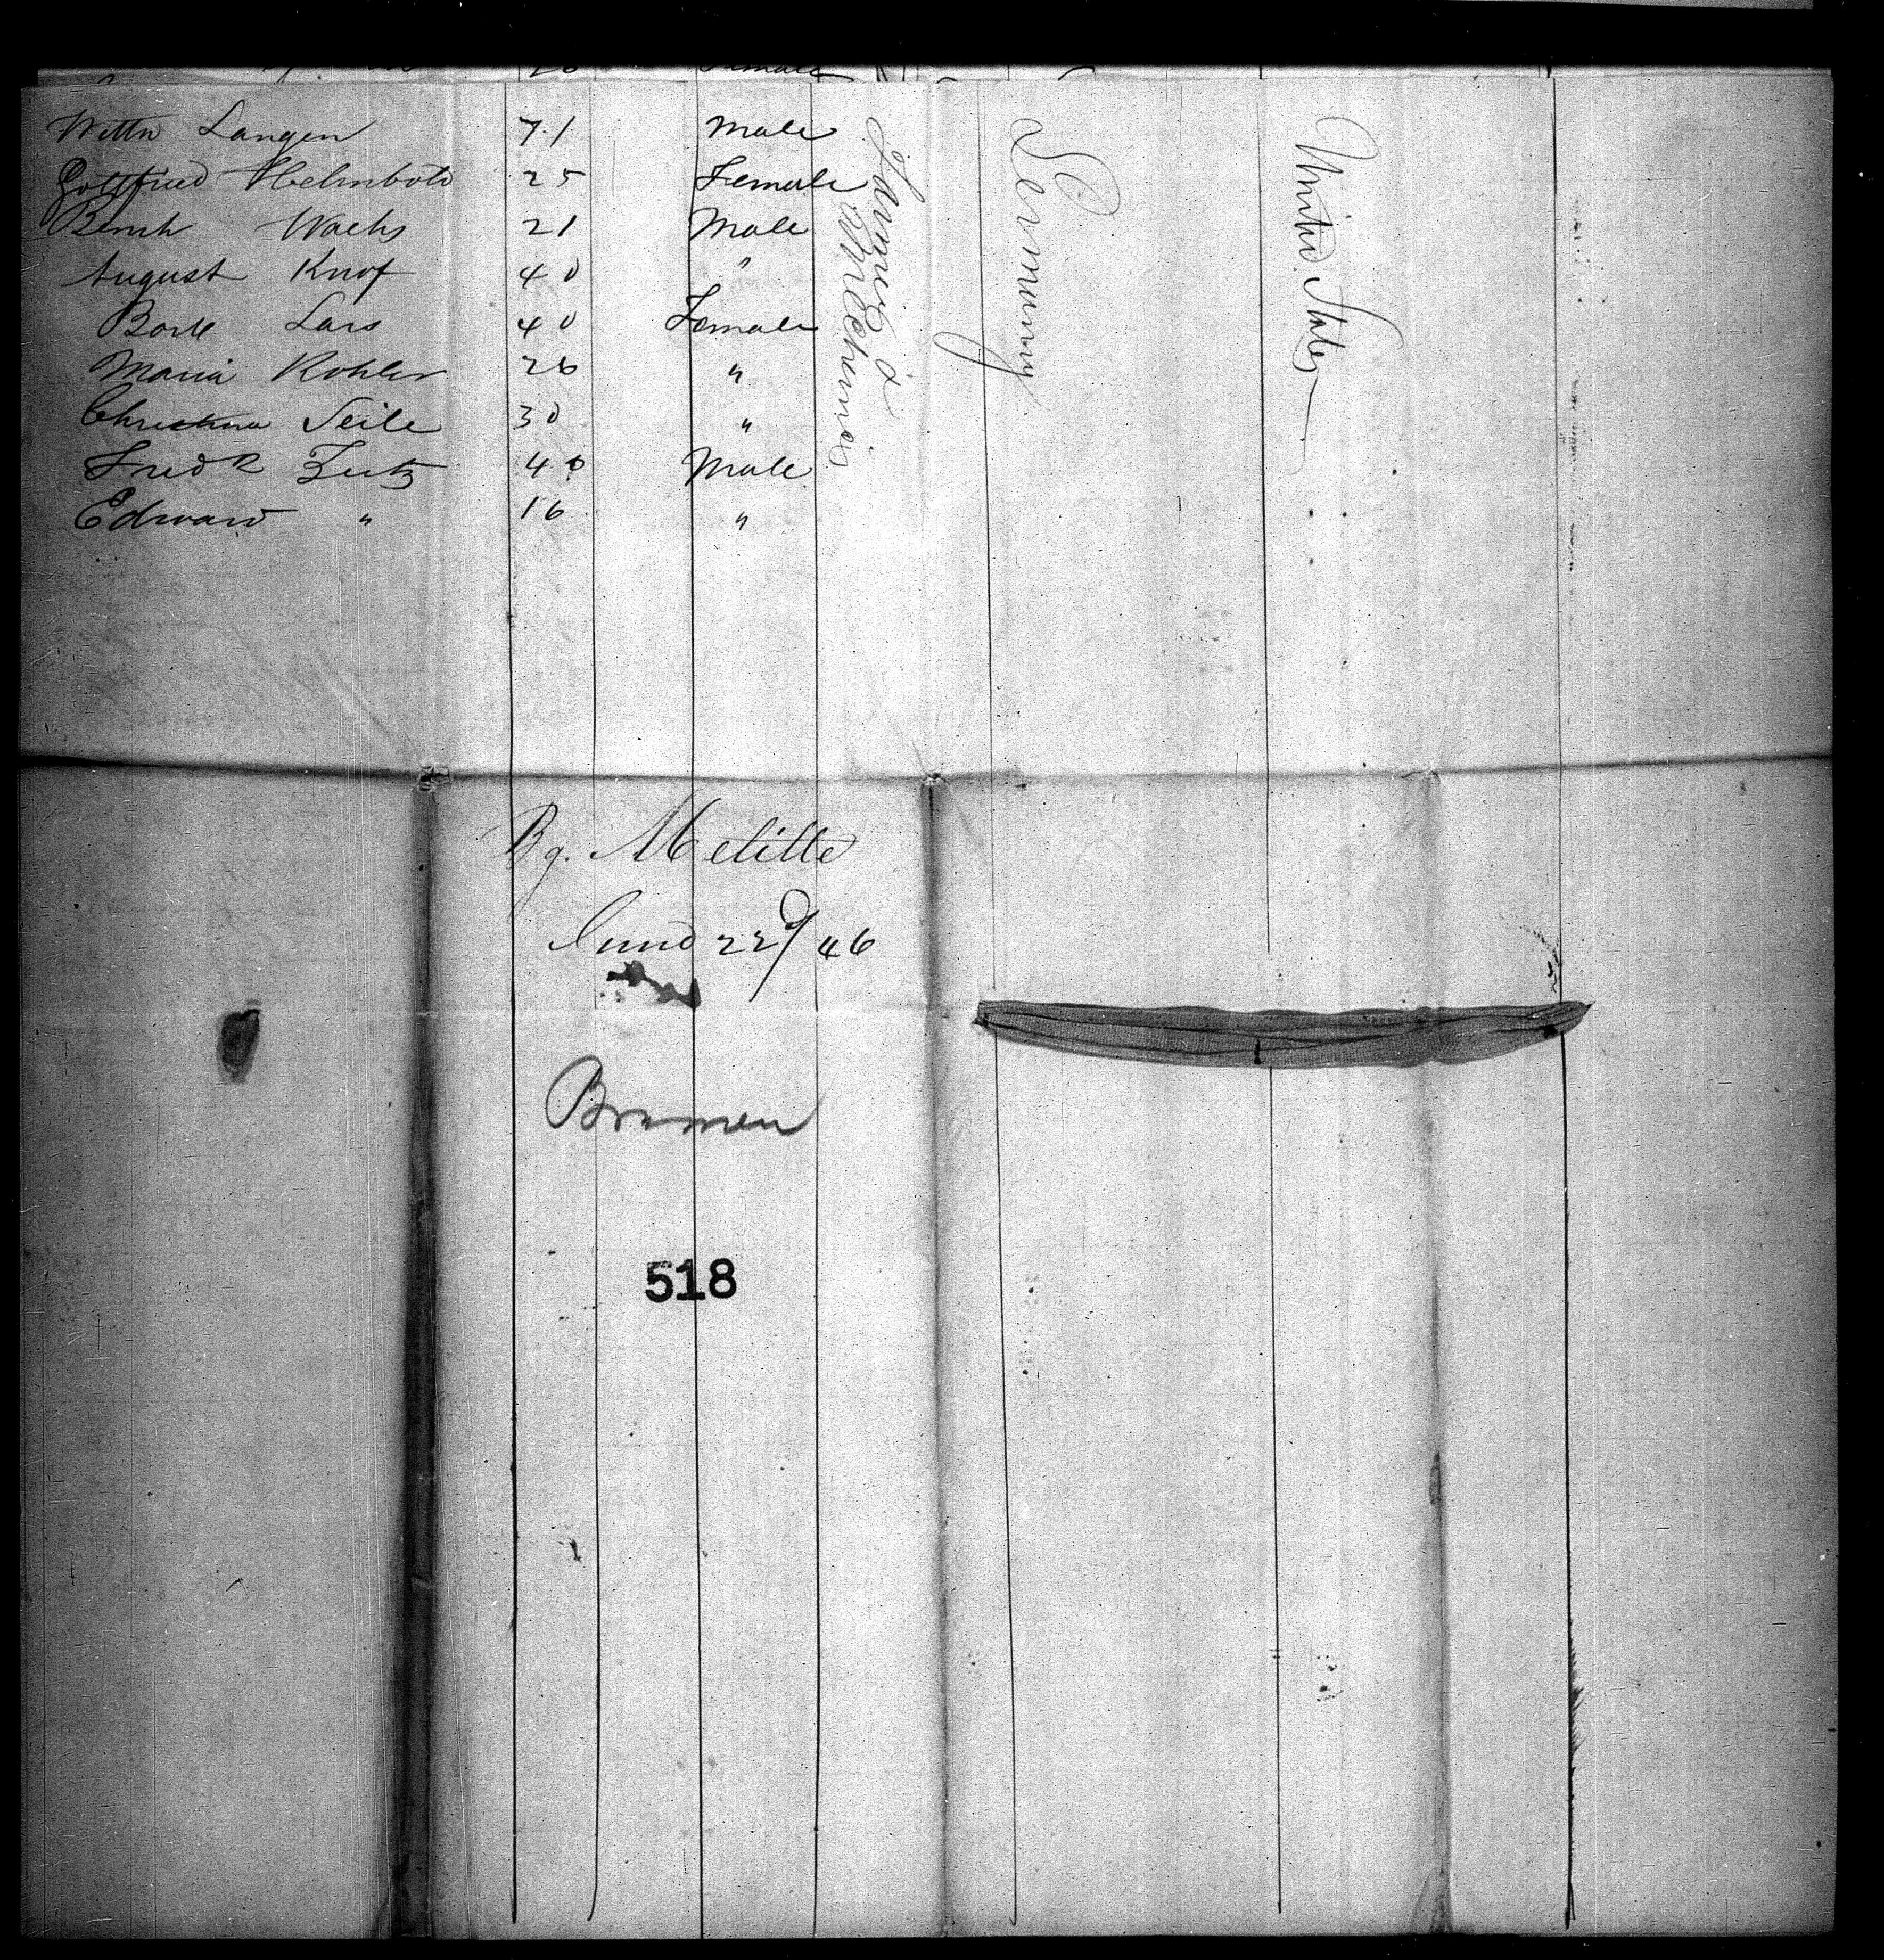 Female
Langen 71 Male
Gottfried Helmbold 25 Female
Wachs 21 Male
August Knof 40 "
Lars 40 Female
Maria Kohler 26 "
Christina Seile 30 "
Fredk 40 Male
Edward " 16 "
Farmers &
Mechanics
Germany
United States
Bg. Melitte
June 22d/46
Bremen
518